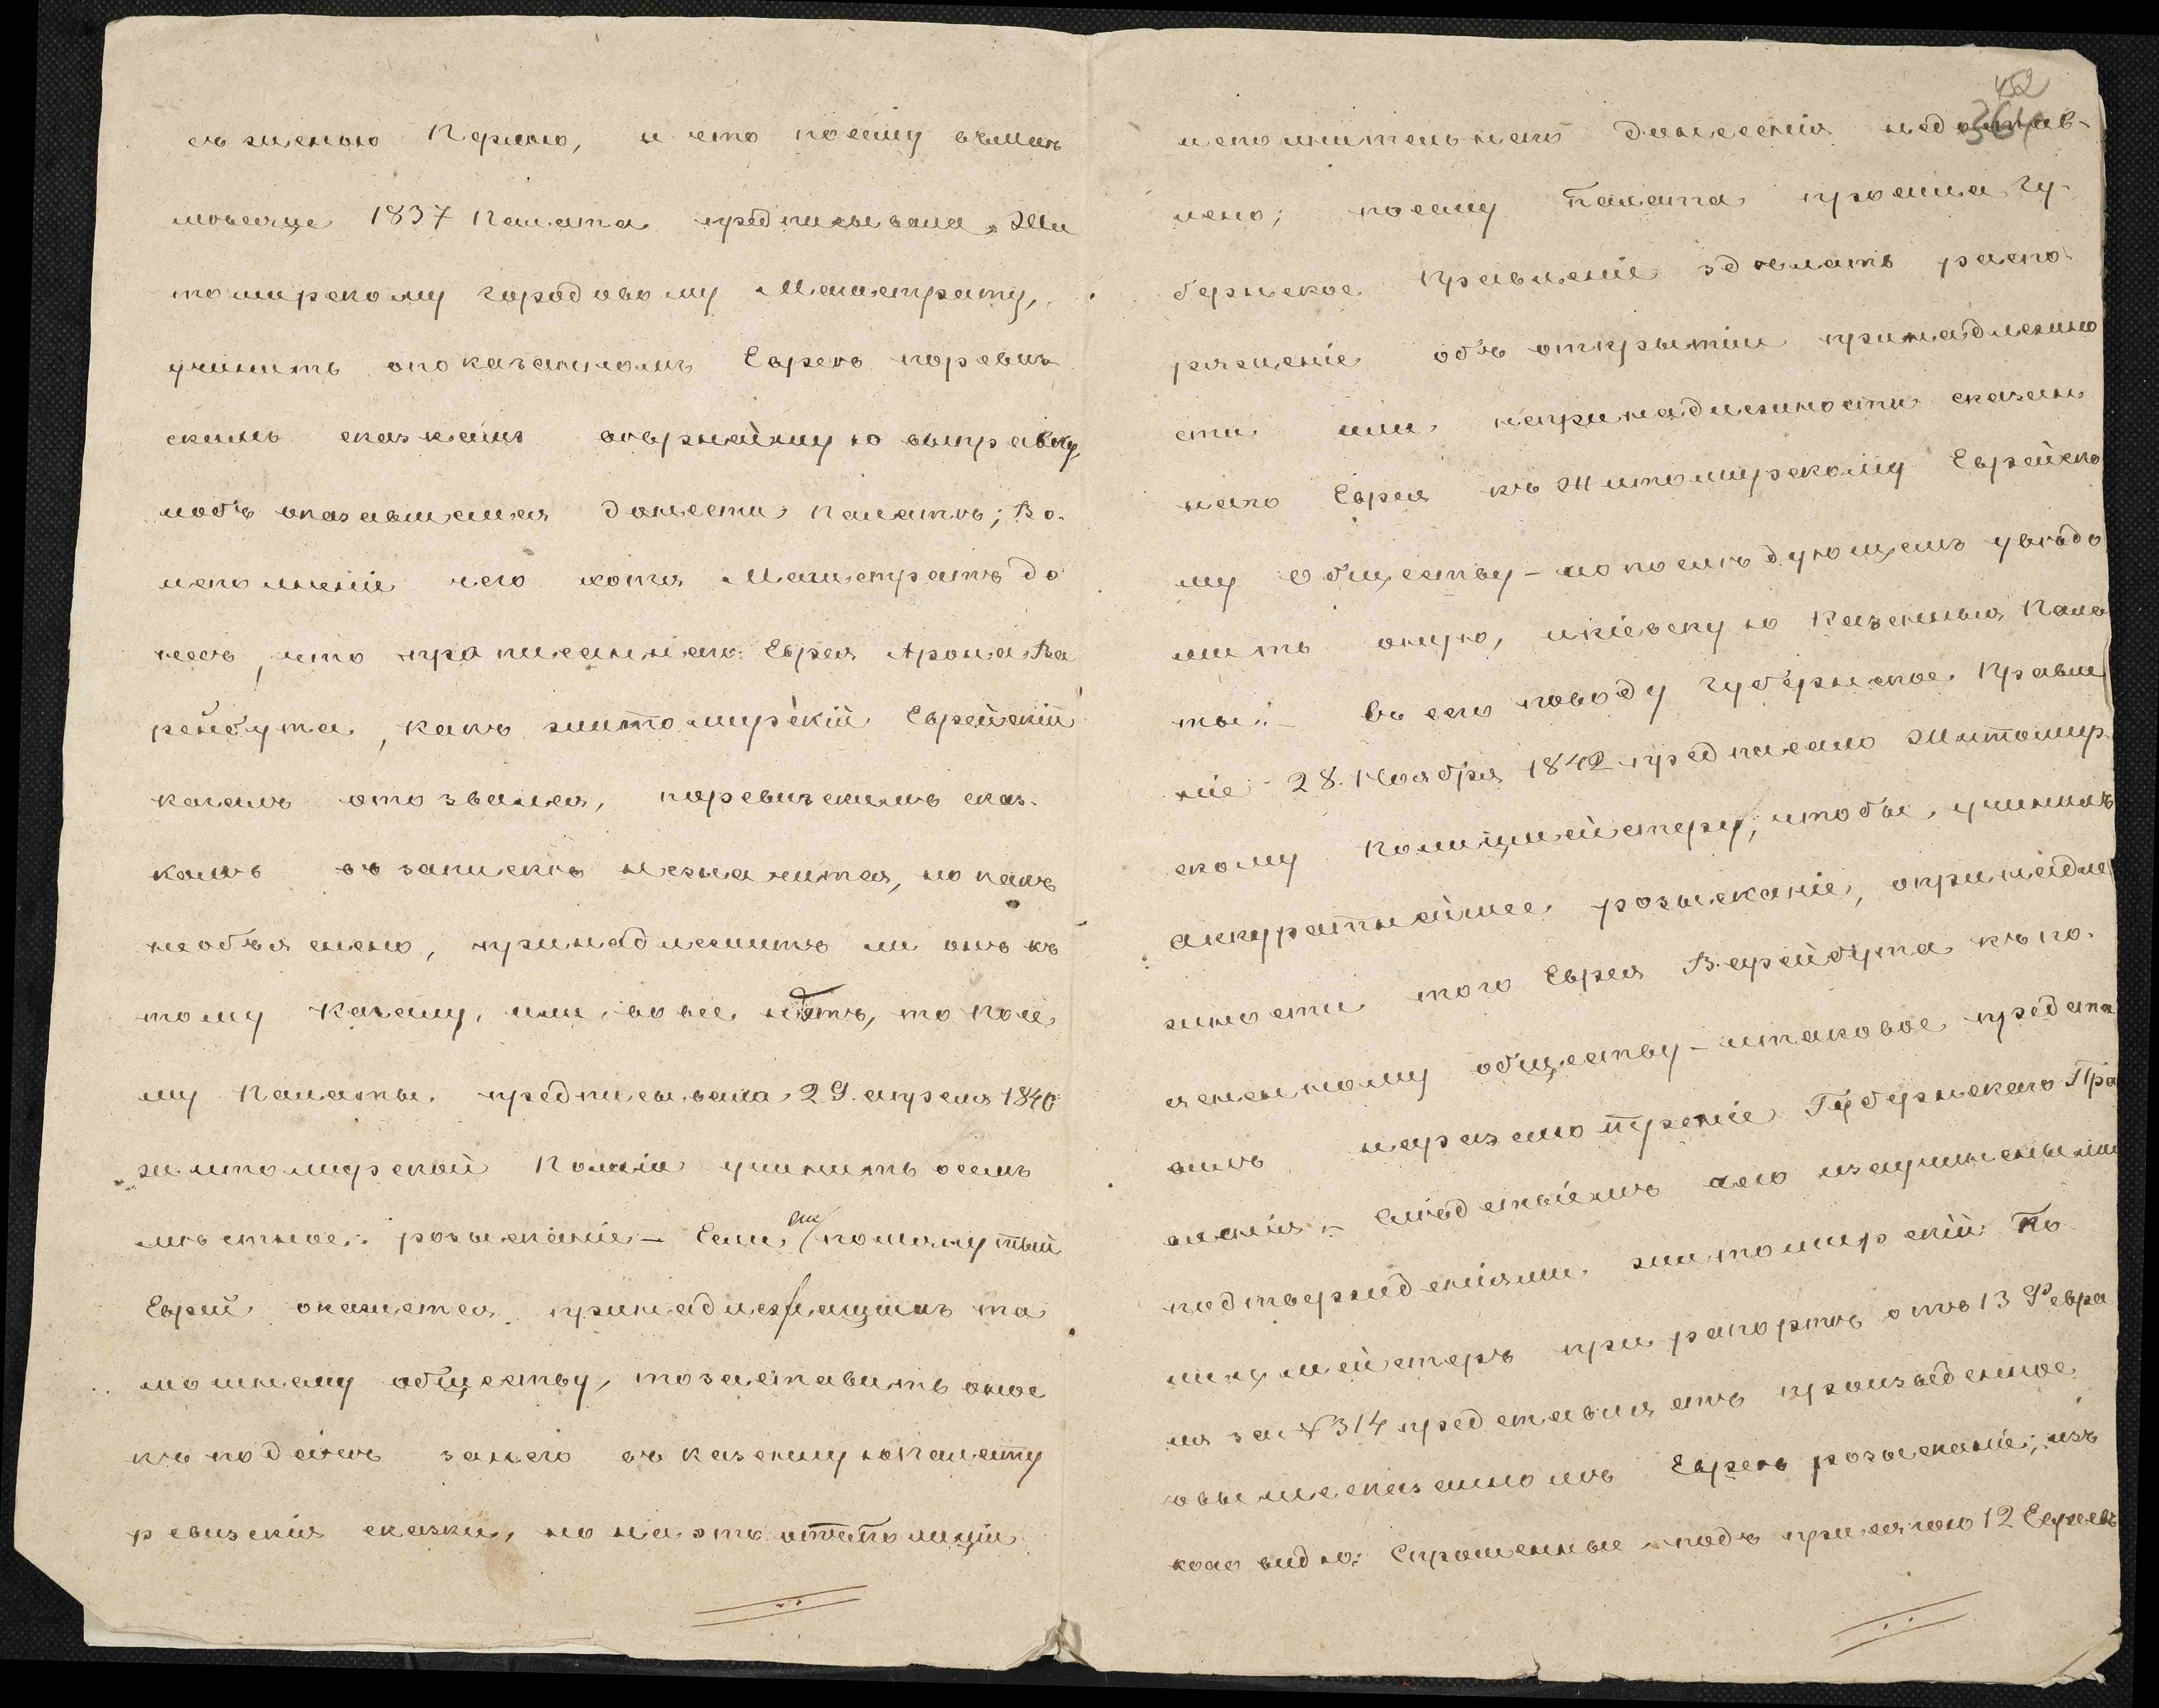 съ женою Перлою, и что посему въ маи
мѣсяце 1837 Палата предписывала Жи
томирскому городовому Магистрату,
учинить опоказанномъ Еврею поревиз
скимъ сказкамъ авѣрнѣйшую выправку,
иобъ оказавшемся донести Палатѣ; Во
исполненіе чего хотя Магистратъ до
несъ, что прописаннаго Еврея Арона Ва
рейбута, какъ житомирскій Еврейскій
кагалъ отозвался, поревизскимъ сказ
камъ въ запискѣ незначится, но какъ
необъяснено, принадлежитъ ли онъ къ
тому Кагалу, или вовсе нѣтъ, то посе
му Палаты предписывала 29 апреля 1840
житомирской Полиціи учинить осемъ
мѣстное розысканіе – Если помянутый
Еврей окажется принадлежащимъ та
мошнему обществу, то заставить оное
къ подачѣ занего въ казенную Палату
ревизскія сказки, но на это отъ Полиціи
452
364
исполнительнаго донесенія недостав-
лено; посему Палата просила Гу-
бернское Правленіе зделать распо
ряженіе объ открытіи принадлежно
сти или непринадлежности сказан
наго Еврея къ Житомирскому Еврейско
му Обществу – ипопослѣдующемъ увѣдо
мить оную, икіевскую Казенныя Пала
ты. – въ сего поводу Губернское Правле
ніе 28 Ноября 1842 предписало Житомир
скому Полицмейстеру, чтобы, учинилъ
аккуратнѣйшее розысканіе, опринадле
жности того Еврея Варейбута къ по
ясненному обществу – итаковое предста
вилъ наразсмотреніе Губернскаго Пра
вленія. – Слѣдствіемъ чего изаучиненными
подтвержденіями житомирскій По
лицмейстеръ при рапортѣ отъ 13 Февра
ля за № 314 представляетъ произведенное
овышесказанномъ Еврею розысканіе; изъ
коего видно: Спрошенные подъ присягою 12 Евреевъ